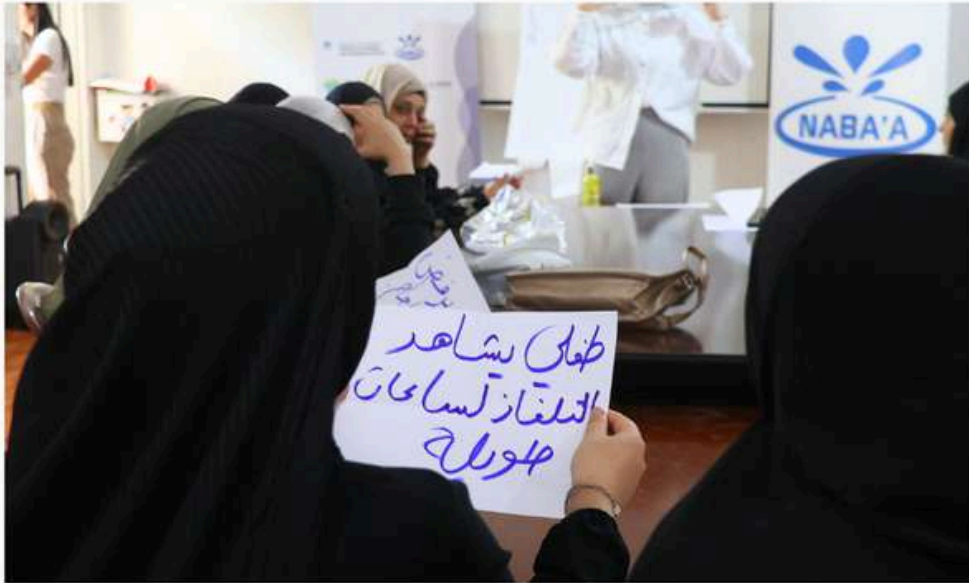 NABA'A
طفلي يشاهد
التلفاز لساعات
طويلة